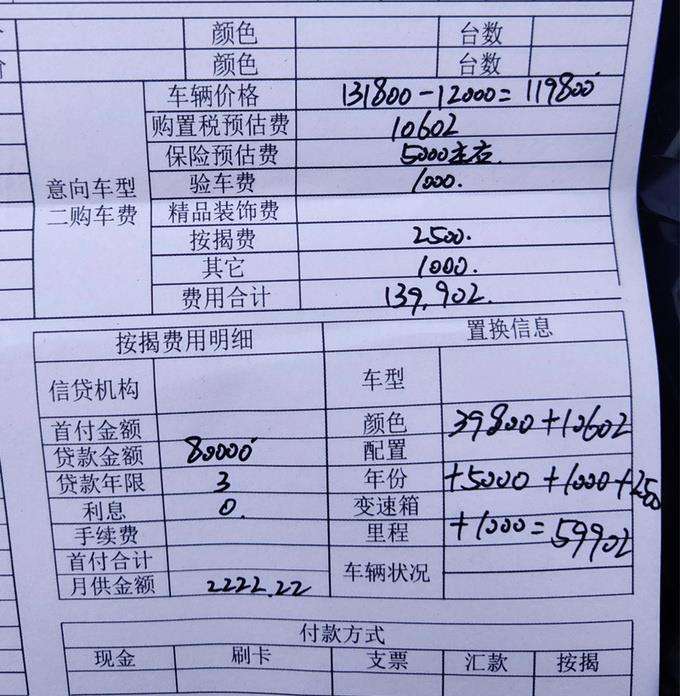 颜色 台数
颜色 台数
意向车型二购车费
车辆价格 131800-12000=119800
购置税预估费 10602
保险预估费 5000左右.
验车费 1000.
精品装饰费
按揭费 2500.
其它 1000.
费用合计 139,902.
按揭费用明细 置换信息
信贷机构 车型
首付金额 颜色 39800+10602
贷款金额 80000 配置
贷款年限 3 年份 +5000+1000+2500
利息 0. 变速箱
手续费 里程 +1000=59902
首付合计 车辆状况
月供金额 2222.22
付款方式
现金 刷卡 支票 汇款 按揭